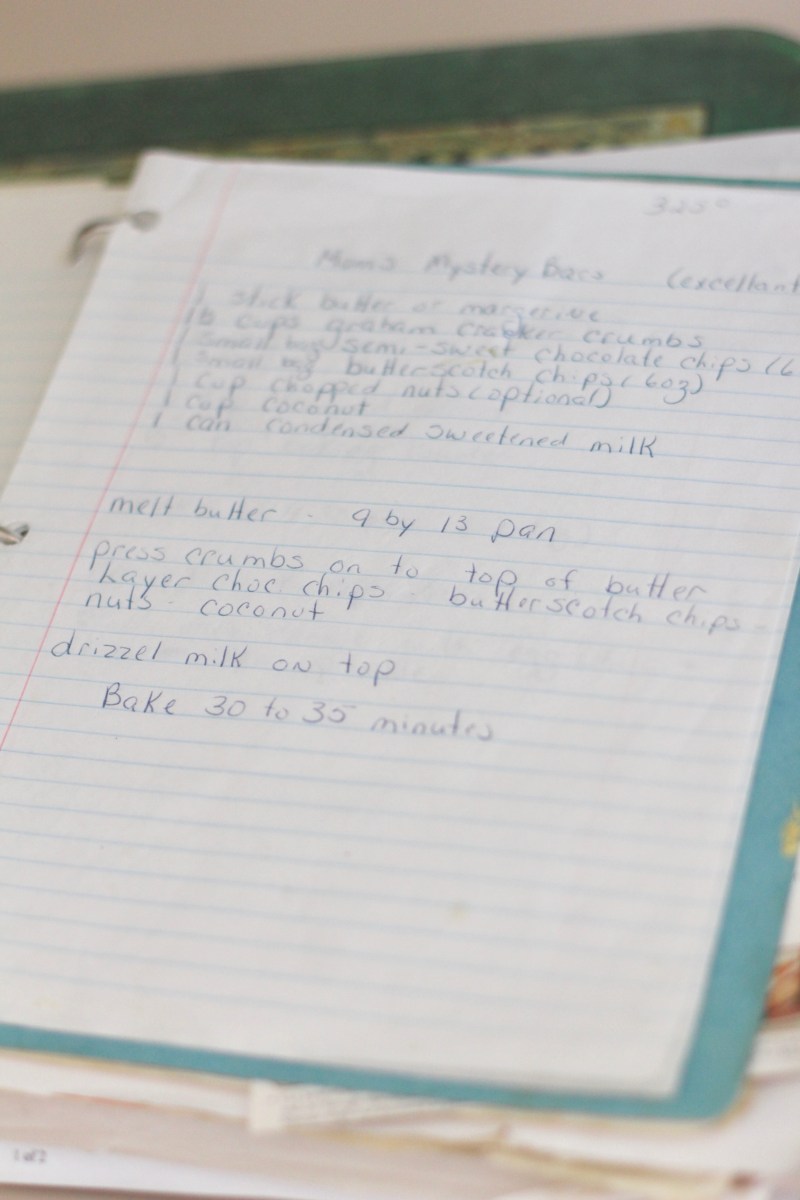 325°
Mom's Mystery Bars (excellant
1 stick butter or margerine
cups graham cracker crumbs
1 small bag semi-sweet chocolate chips (6
1 small bag butterscotch chips (6oz)
1 cup chopped nuts (optional)
1 cup coconut
1 can condensed sweetened milk
melt butter - 9 by 13 pan
press crumbs on to top of butter
Layer choc. chips - butterscotch chips -
nuts - coconut
drizzel milk on top
Bake 30 to 35 minutes
1 of 2